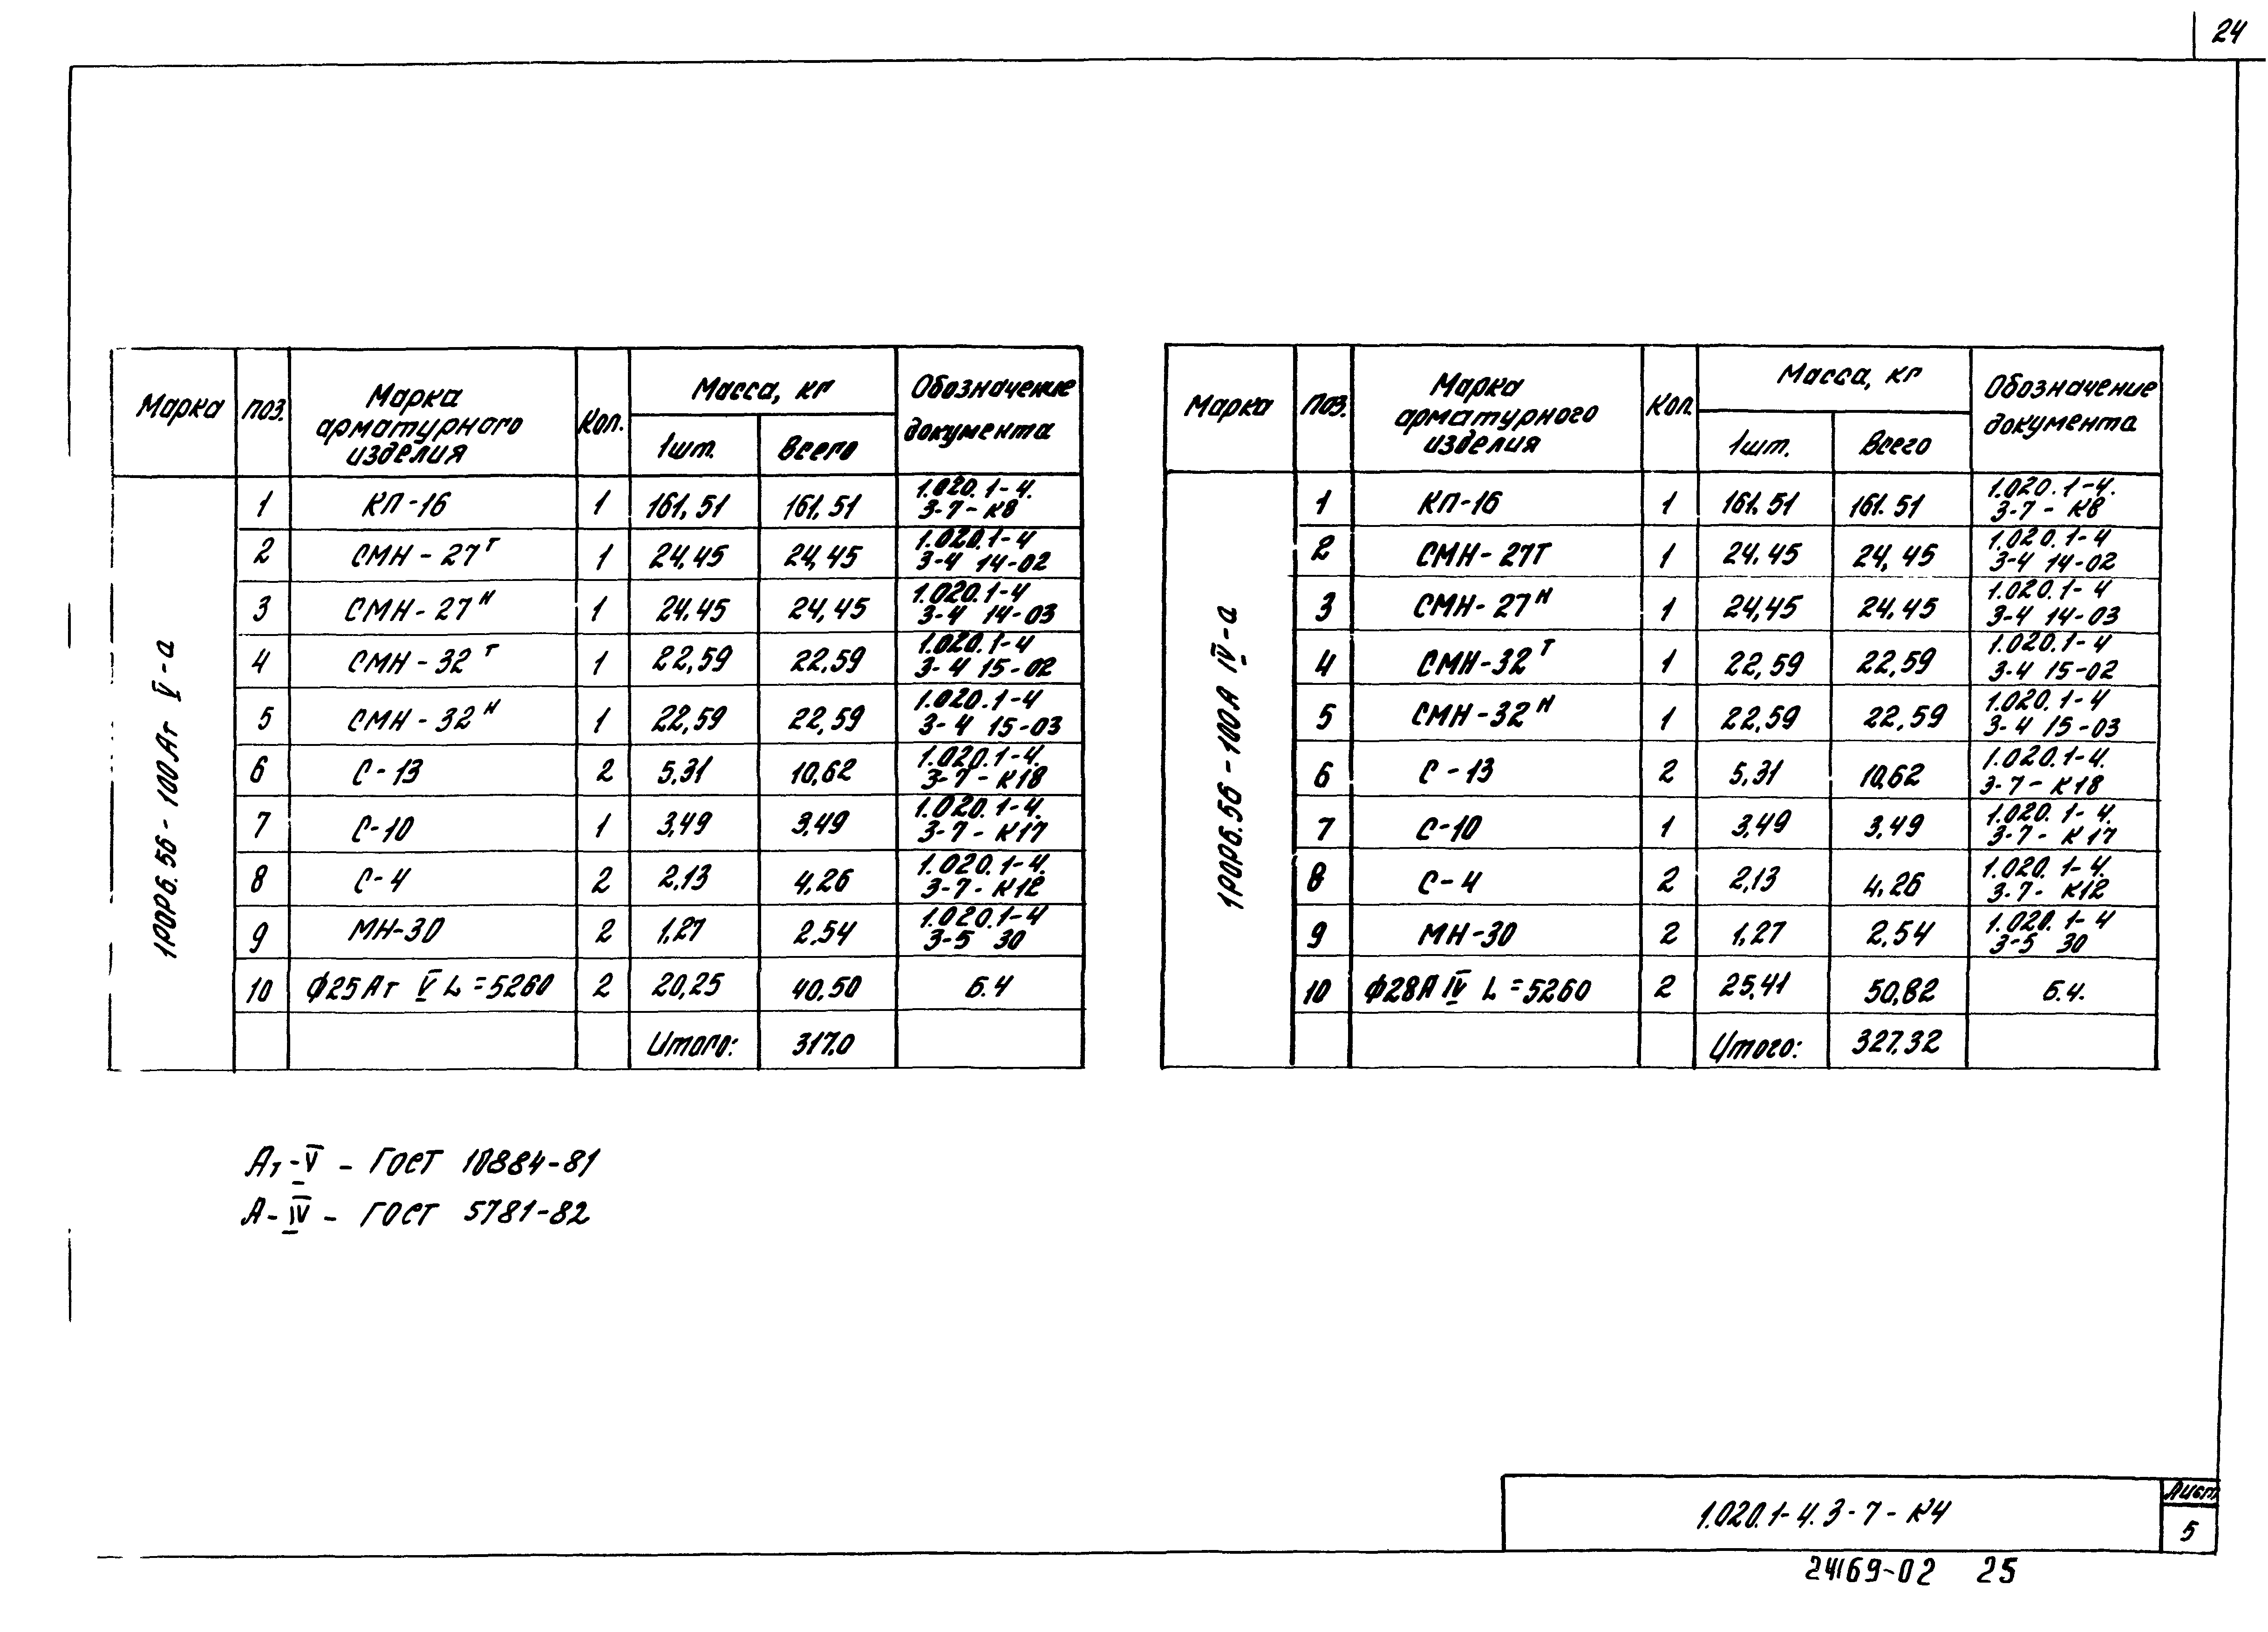 24
Марка поз. Марка арматурного изделия Кол. Масса, кг 1шт. Всего Обозначение документа
1РОР6.56-100Ат V-а
1 КП-16 1 161,51 161,51 1.020.1-4. 3-7-К8
2 СМН-27Т 1 24,45 24,45 1.020.1-4 3-4 14-02
3 СМН-27Н 1 24,45 24,45 1.020.1-4 3-4 14-03
4 СМН-32Т 1 22,59 22,59 1.020.1-4 3-4 15-02
5 СМН-32Н 1 22,59 22,59 1.020.1-4 3-4 15-03
6 С-13 2 5,31 10,62 1.020.1-4. 3-7-К18
7 С-10 1 3,49 3,49 1.020.1-4. 3-7-К17
8 С-4 2 2,13 4,26 1.020.1-4. 3-7-К12
9 МН-30 2 1,27 2,54 1.020.1-4 3-5 30
10 ф25Ат V L=5260 2 20,25 40,50 Б.Ч
Итого: 317,0
Марка поз. Марка арматурного изделия Кол. Масса, кг 1шт. Всего Обозначение документа
1РОР6.56-100А IV-а
1 КП-16 1 161,51 161.51 1.020.1-4. 3-7-К8
2 СМН-27Т 1 24.45 24,45 1.020.1-4 3-4 14-02
3 СМН-27Н 1 24,45 24.45 1.020.1-4 3-4 14-03
4 СМН-32Т 1 22,59 22,59 1.020.1-4 3-4 15-02
5 СМН-32Н 1 22,59 22,59 1.020.1-4 3-4 15-03
6 С-13 2 5,31 10,62 1.020.1-4. 3-7-К18
7 С-10 1 3,49 3,49 1.020.1-4. 3-7-К17
8 С-4 2 2,13 4,26 1.020.1-4. 3-7-К12
9 МН-30 2 1,27 2,54 1.020.1-4 3-5 30
10 ф28А IV L=5260 2 25,41 50,82 Б.Ч.
Итого: 327,32
Ат-V - ГОСТ 10884-81
А-IV - ГОСТ 5781-82
1.020.1-4.3-7-К4
Лист
5
24169-02 25